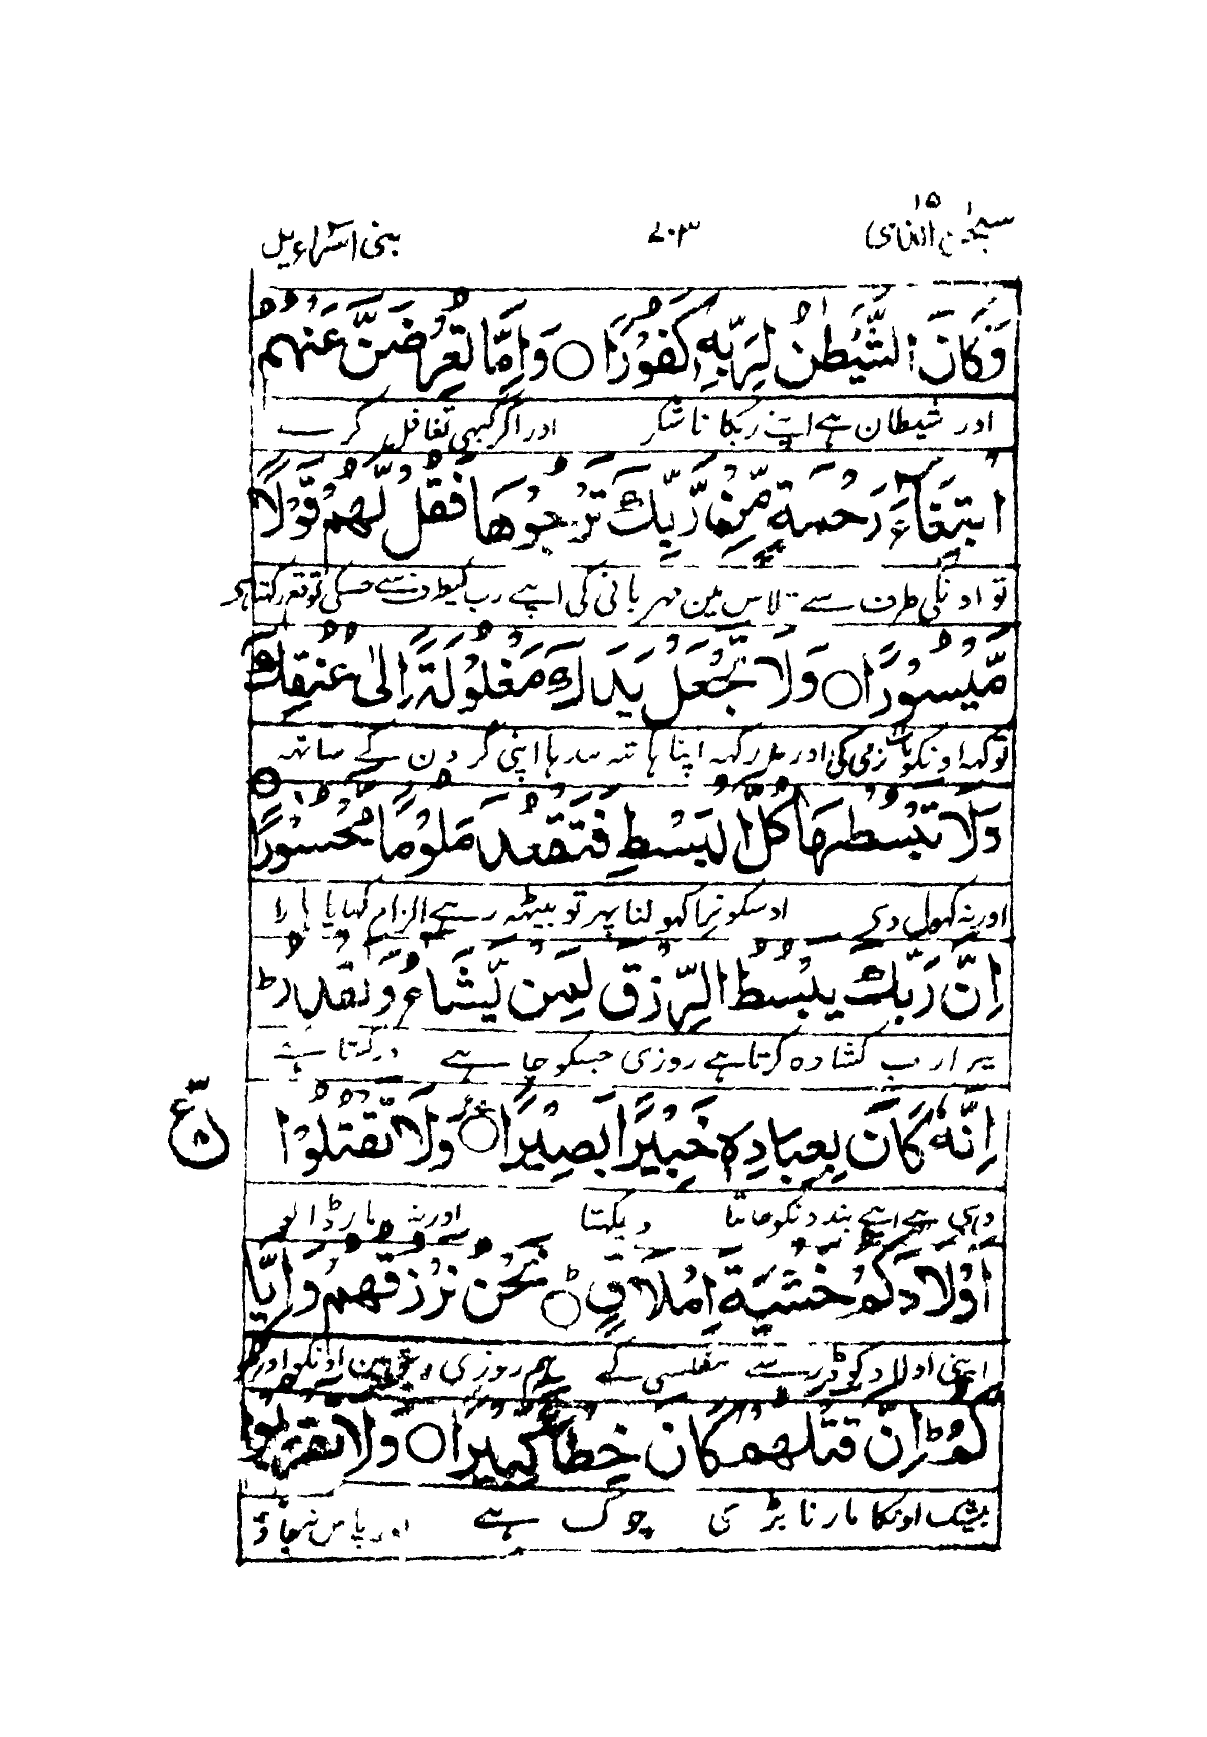 سبحٰن الذی ۱۵ ۷۰۳ بنی اسراءیل
وَكَانَ الشَّيْطٰنُ لِرَبِّهٖ كَفُوْرًا ○ وَاِمَّا تُعْرِضَنَّ عَنْهُمُ
اور شیطان ہے اپنے ربکا ناشکر اور اگر کبہی تغافل کرے
ابْتِغَآءَ رَحْمَةٍ مِّنْ رَّبِّكَ تَرْجُوْهَا فَقُلْ لَّهُمْ قَوْلًا
تو اونکی طرف سے تلاس مین مہربانی کی اپنے رب کیطرف سے جسکی توقع رکہتا ہے
مَّيْسُوْرًا ○ وَلَا تَجْعَلْ يَدَكَ مَغْلُوْلَةً اِلٰى عُنُقِكَ
تو کہہ اونکو بات نرمی کی اور نہ رکہہ اپنا ہاتہہ بندہا اپنی گردن کے ساتہہ
وَلَا تَبْسُطْهَا كُلَّ الْبَسْطِ فَتَقْعُدَ مَلُوْمًا مَّحْسُوْرًا ○
اور نہ کہول دے اوسکو نرا کہولنا پہر تو بیٹہہ رہے الزام کہایا ہارا
اِنَّ رَبَّكَ يَبْسُطُ الرِّزْقَ لِمَنْ يَّشَآءُ وَيَقْدِرُ ط
تیرا رب کشادہ کرتا ہے روزی جسکو چاہے اور کستا ہے
اِنَّهٗ كَانَ بِعِبَادِهٖ خَبِيْرًا بَصِيْرًا ○ وَلَا تَقْتُلُوْۤا
ع
وہی ہے اپنے بندونکو جانتا دیکہتا اور نہ مار ڈالو
اَوْلَادَكُمْ خَشْيَةَ اِمْلَاقٍ ○ ط نَحْنُ نَرْزُقُهُمْ وَاِيَّا
اپنی اولاد کو ڈر سے مفلسی کے ہم روزی دیتے ہین اونکو اور تمکو
كُمْ ط اِنَّ قَتْلَهُمْ كَانَ خِطْاً كَبِيْرًا ○ وَلَا تَقْرَبُوا
بیشک اونکا مارنا بڑی چوک ہے اور پاس نجاؤ